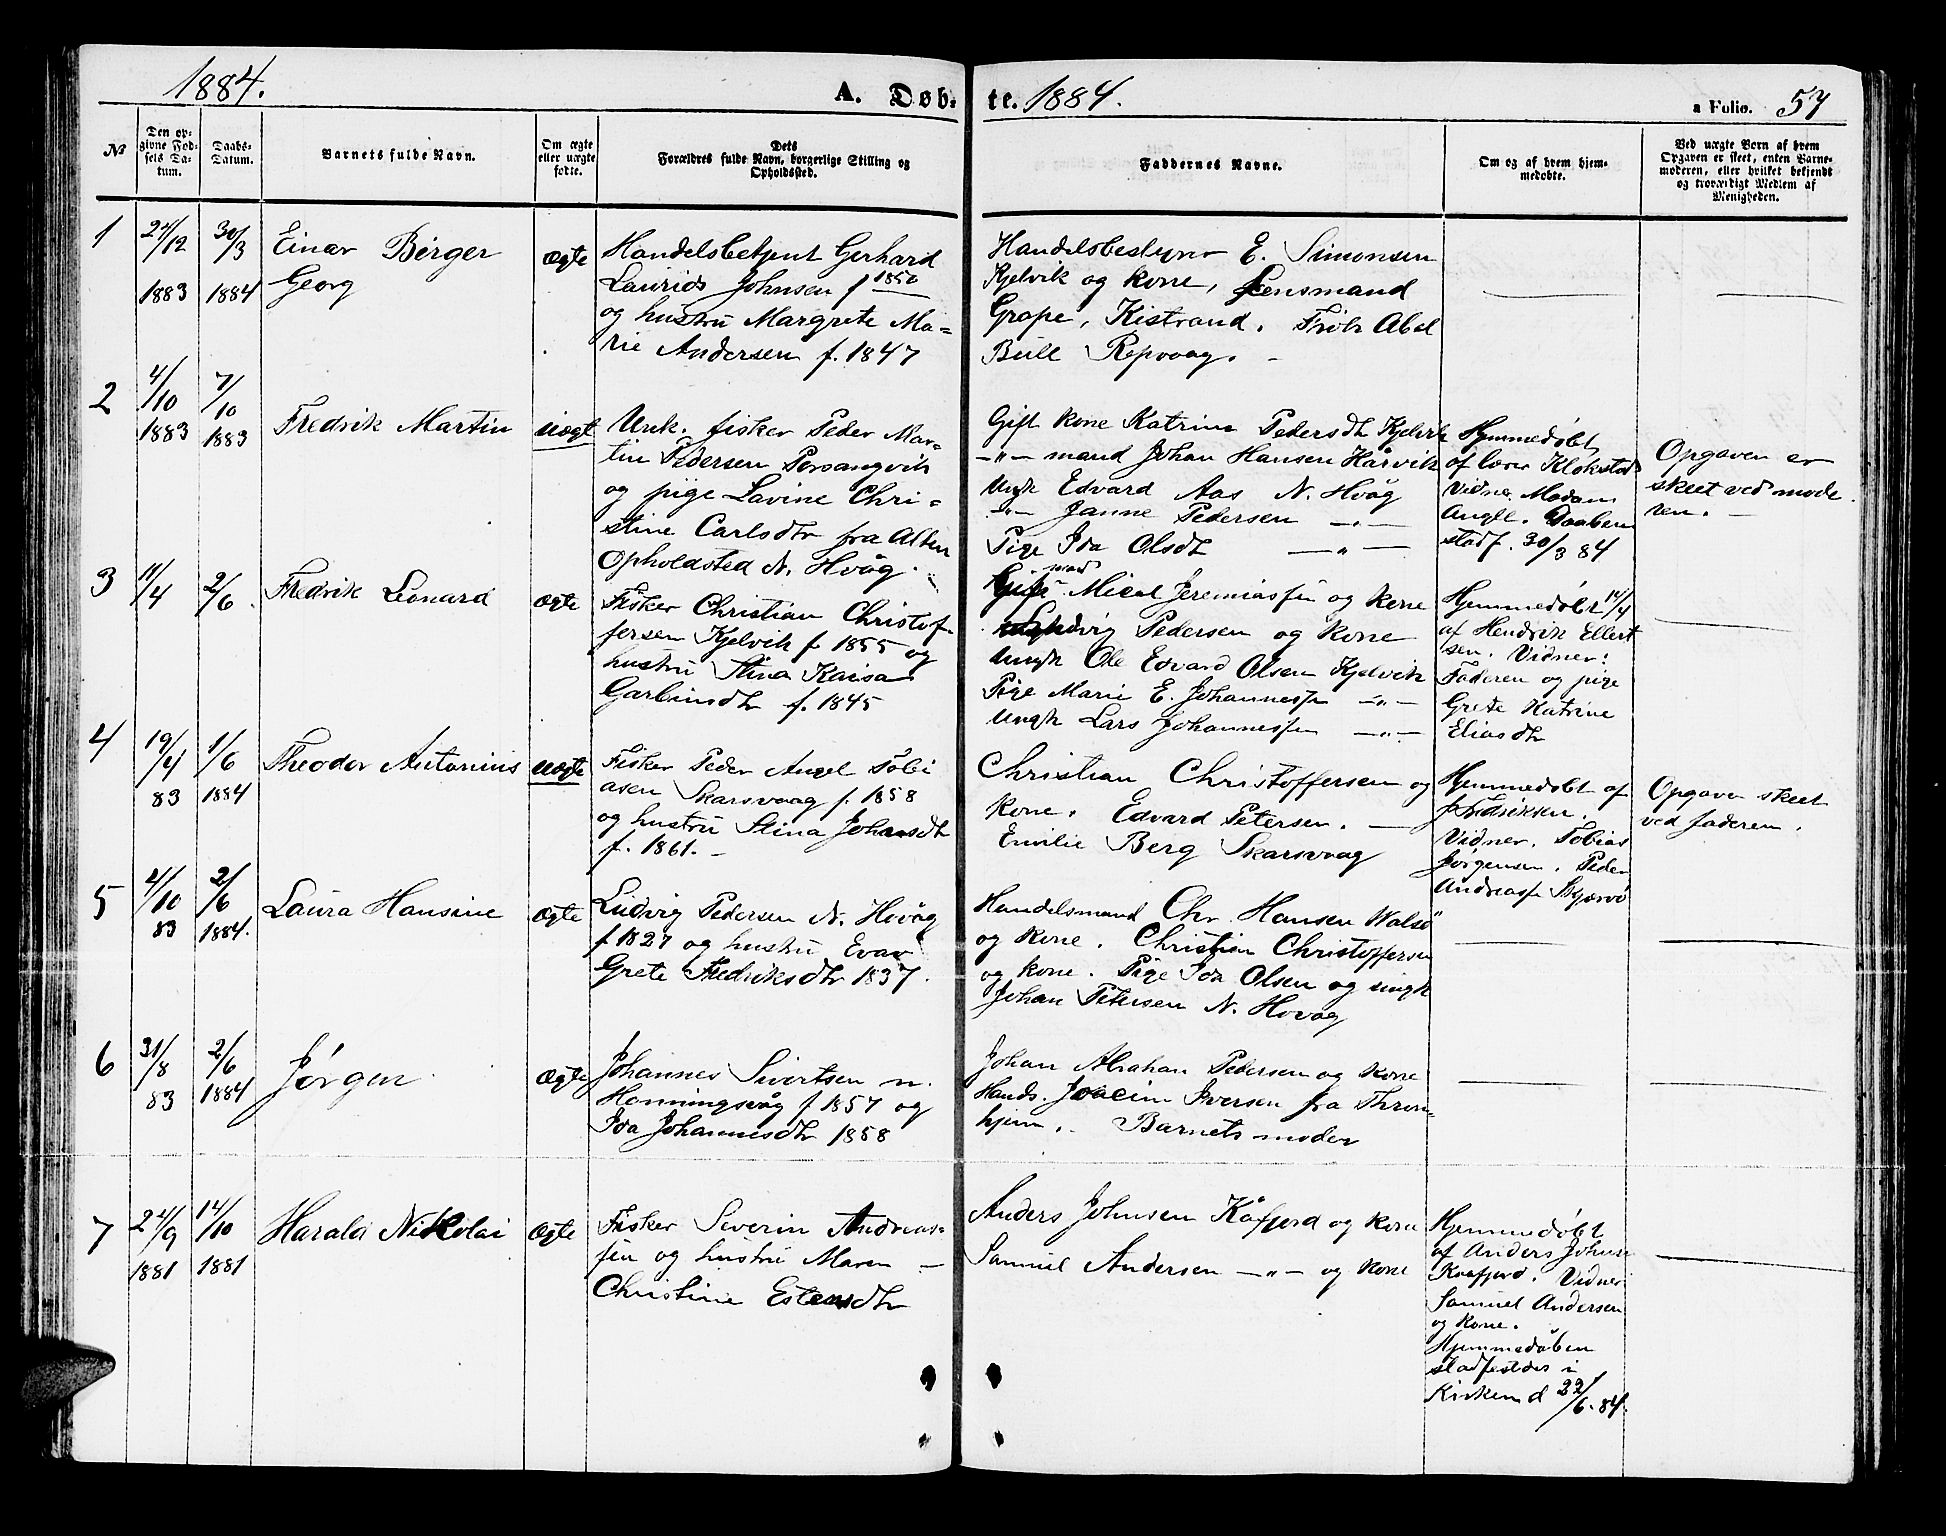 1884.
A. Døb-
te. 1884.
a Folio. 57
№
Den op-
givne Fød-
sels Da-
tum.
Daabs-
Datum.
Barnets fulde Navn.
Om ægte
eller uægte
fødte.
Dets
Forældres fulde Navn, borgerlige Stilling og
Opholdssted.
Faddernes Navne.
Om og af hvem hjem-
medøbte.
Ved uægte Børn af hvem
Opgaven er skeet, enten Barne-
moderen, eller hvilket bekjendt
og troværdigt Medlem af
Menigheden.
1
1883
30/3
1884
Einar Birger
Georg
Ægte
Handelsbetjent Gerhard
Laurids Johnsen f
og hustru Margrete Ma-
rie Andersen f. 1847
Handelsbestyrer E. Simonsen
Kjelvik og kone, Lensmand
Grape, Kistrand. Frøk Abel
Bull Repvaag.
2
4/10
1883
7/10
1883
Fredrik Martin
uægt
Unk. fisker Peder Mar-
tin Pedersen Porsangvik
og pige Lavine Chri-
stine Carlsdtr fra Alten
Opholdsted N. Hvåg.
Gift kone Katrine Pedersdtr Kjelvik
-"- mand Johan Hansen Hårvik
Ungk Edvard Aas N. Hvåg
-"- Janne Pedersen -"-
Pige Ida Olsdtr -"-
Hjemmedøbt
af lærer Klokstad
Vidne. Madam
Angll. Daaben
stadf. 30/3 84
Opgaven er
skeet ved mode
ren.
3
11/4
2/6
Fredrik Leonard
Ægte
Fisker Christian Christof
fersen Kjelvik f 1855 og
hustru Stina Kaisa
f. 1845
mand
Gift Micel Jeremiassen og kone
Ludvig Pedersen og kone
Ungk Ole Edvard Olsen Kjelvik
Pige Marie E. Johannessen -"-
Ungk Lars Johannessen -"-
Hjemmedøbt 14/4
af Hendrik Ellert
sen. Vidner:
Faderen og pige
Grete Katrine
Eliasdtr
4
19/4
83
1/6
1884
Theodor Antonius
uægte
Fisker Peder Angel Tobi
asen Skarsvaag f. 1858
og hustru Stina Johansdtr
f. 1861.
Christian Christoffersen og
kone. Edvard Petersen.
Emilie Berg Skarsvaag
Hjemmedøbt af
Fredriksen.
Vidner. Tobias
Jørgensen. Peder
Andreass Skjærvø
Opgaven skeet
ved faderen.
5
4/10
83
2/6
1884.
Laura Hansine
Ægte
Ludvig Pedersen N. Hovåg
f 1827 og hustru Eva
Grete Fredriksdtr 1837.
Handelsmand Chr. Hansen Walsö
og kone. Christian Christoffersen
og kone. Pige Ida Olsen og ungk
Johan Petersen N. Hovåg
6
31/8
83
2/6
1884
Jørgen
Ægte
Johannes Sivertsen n.
Honningsvåg f 1857 og
Ida Johannesdtr 1858
Johan Abrahan Pedersen og kone
Hands. Joacim Iversen fra Thron-
hjem. Barnets moder
7
1881
14/10
1881
Harald Nikolai
Ægte
Fisker Severin Andreas-
sen og hustru Maren -
Christine Estensdtr
Anders Johnsen Kåfjord og kone
Samuel Andersen -"- og kone
Hjemmedøbt
af Anders Johns
Kaafjord. Vidner
Samuel Andersen
og Kone.
Hjemmedåben
stadfestdes i
Kirken d 22/6. 84.